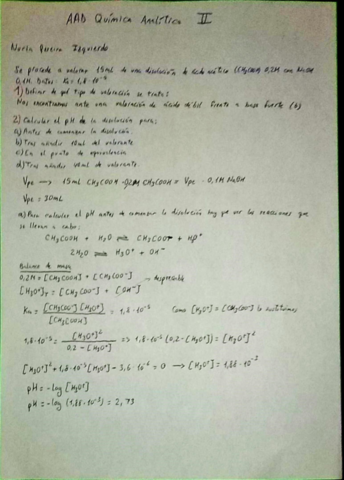 AAD Química Analítica II
Nuria Izquierdo
Se procede a valorar 15ml de una disolución de ácido acético (CH3COOH) 0,2M con NaOH
0,1M. Datos: Ka=1,8·10^-5
1) Definir de qué tipo de valoración se trata:
Nos encontramos ante una valoración de ácido débil frente a base fuerte (b)
2) Calcular el pH de la disolución para:
a) Antes de comenzar la disolución.
b) Tras añadir 10ml del valorante
c) En el punto de equivalencia
d) Tras añadir ml de valorante.
Vpe → 15ml CH3COOH · 0,2M CH3COOH = Vpe · 0,1M NaOH
Vpe = 30ml
a) Para calcular el pH antes de comenzar la disolución hay que ver las reacciones que
se llevan a cabo:
CH3COOH + H2O ⇌ CH3COO- + H3O+
2H2O ⇌ H3O+ + OH-
Balance de masa
0,2M = [CH3COOH] + [CH3COO-]
[H3O+]T = [CH3COO-] + [OH-] → despreciable
Ka = [CH3COO-][H3O+] / [CH3COOH] = 1,8·10^-5 Como [H3O+] = [CH3COO-] lo sustituimos
1,8·10^-5 = [H3O+]^2 / 0,2 - [H3O+] => 1,8·10^-5 (0,2-[H3O+]) = [H3O+]^2
[H3O+]^2 + 1,8·10^-5 [H3O+] - 3,6·10^-6 = 0 → [H3O+] = 1,88·10^-3
pH = -log [H3O+]
pH = -log (1,88·10^-3) = 2,73